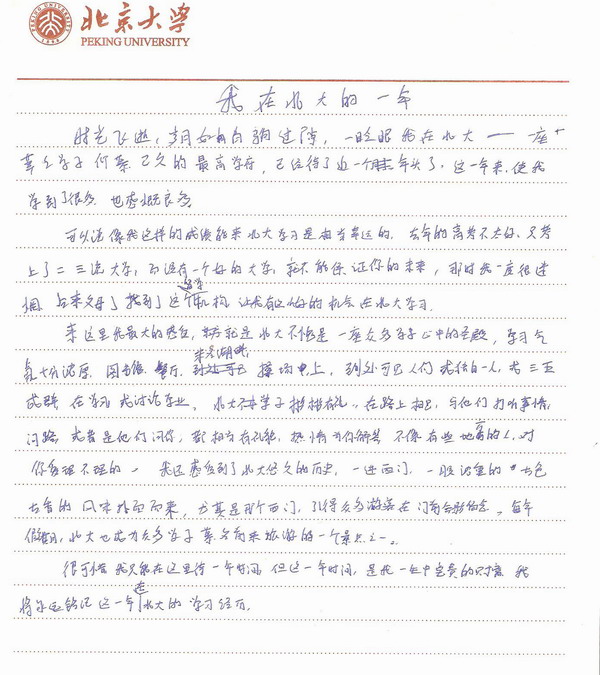 北京大学
PEKING UNIVERSITY
我在北大的一年
时光飞逝,岁月如白驹过隙,一眨眼我在北大——一座
莘莘学子仰慕已久的最高学府,已经待了近一个年头了。这一年来,使我
学到了很多,也感慨良多。
可以说像我这样的成绩能来北大学习是相当幸运的。去年的高考不太好,只考
上了二三流大学,而没有一个好的大学,就不能保证你的未来,那时我一度很迷
惘。后来父母了找到了这个留学机构,让我有这么好的机会在北大学习。
来这里我最大的感受,就是北大不愧是一座众多学子心中的圣殿,学习气
氛十分浓厚。图书馆、餐厅、未名湖畔、操场上,到处可见人们或独自一人,或三五
成群在学习或讨论学业。北大学子彬彬有礼,在路上相见,与他们打听事情,
问路,或者是他们问你,都相当有礼貌,热情为你解答,不像有些地方的人,对
你爱理不理的。我还感受到了北大悠久的历史,一进西门,一股浓重的古色
古香的风味扑面而来,尤其是那个西门,引得众多游客在门前合影留念。每年
假期,北大也成为众多学子慕名前来旅游的一个景点之一。
很可惜我只能在这里待一年时间,但这一年时间,是我一生中宝贵的财富,我
将永远铭记这一年在北大的学习经历。